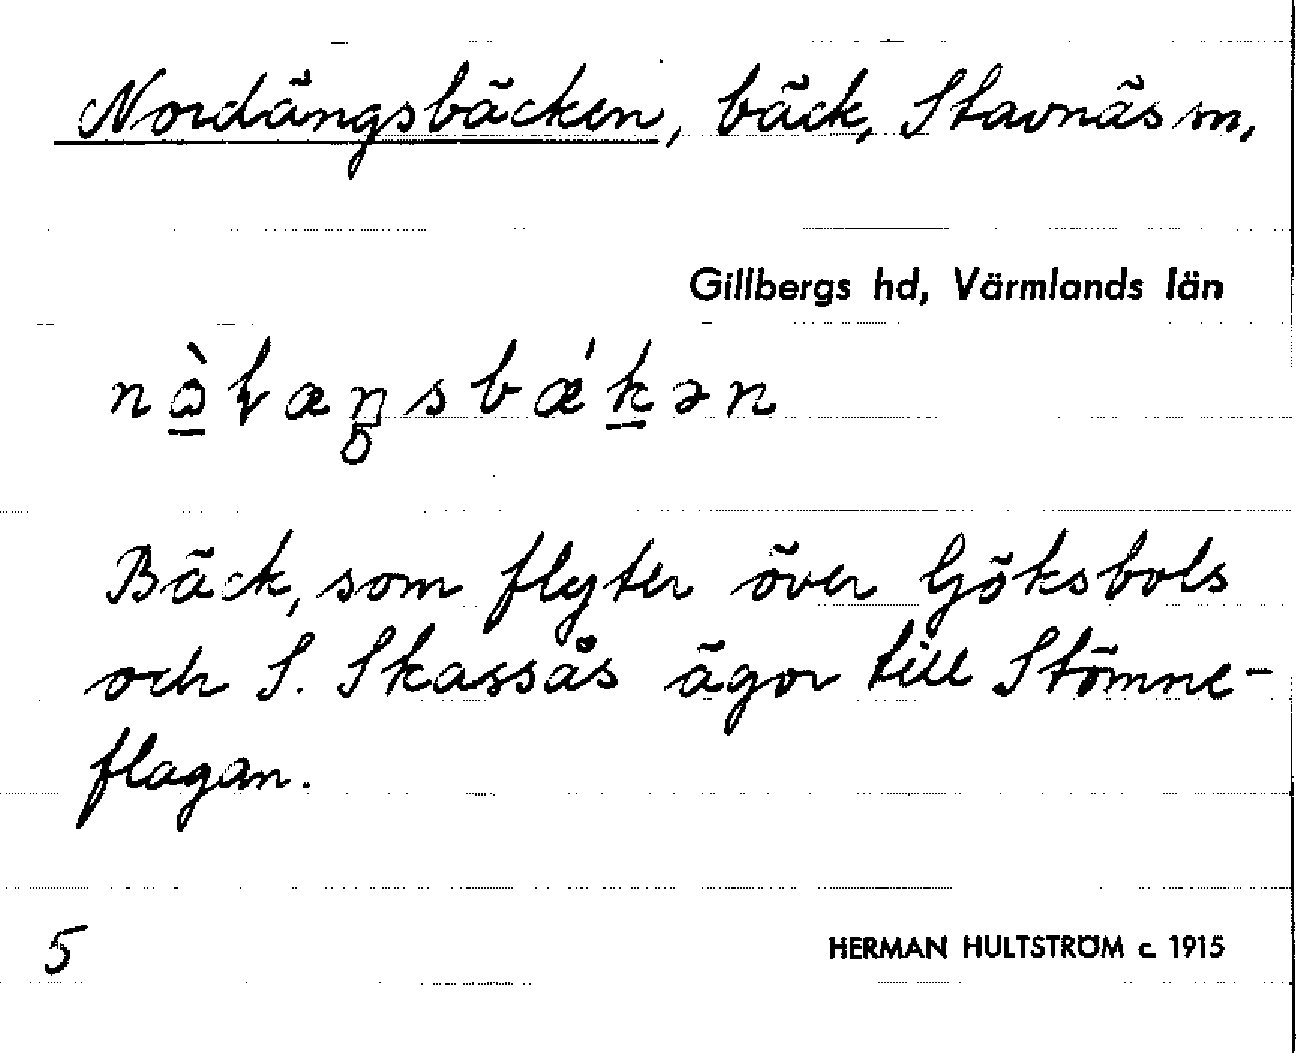 Nordängsbäcken, bäck, Stavnäs sn,
Gillbergs hd, Värmlands län
Bäck, som flyter över Göksbols
och S. Skassås ägor till Stömne-
flagan.
5
HERMAN HULTSTRÖM c. 1915